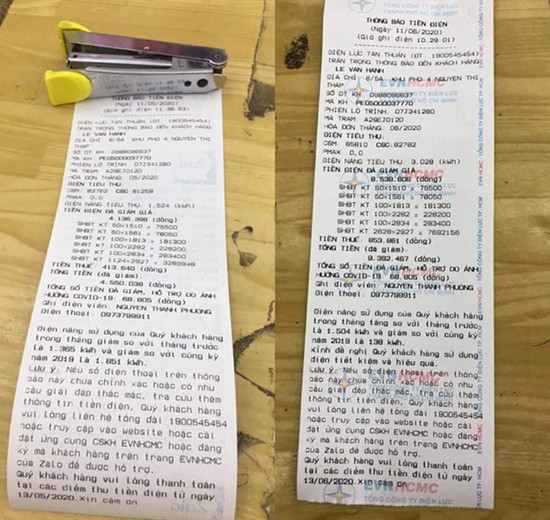 THÔNG BÁO TIỀN ĐIỆN
(Ngày 11/05/2020)
ĐIỆN LỰC TÂN THUẬN (ĐT 1900545454)
TRÂN TRỌNG THÔNG BÁO ĐẾN KHÁCH HÀNG
LE VAN HANH
ĐỊA CHỈ 8/5A KHU PHO 4 NGUYEN THI
THAP
SỐ ĐT KH 0988098637
MÃ KH PE05000037770
PHIÊN LỘ TRÌNH 073341280
MÃ TRẠM A29EJ012D
HÓA ĐƠN THÁNG 05/2020
ĐIỆN TIÊU THỤ
CSM: 82782 CSC 81258
PMAX 0,0
ĐIỆN NĂNG TIÊU THỤ: 1.524 (kWh)
TIỀN ĐIỆN ĐÃ GIẢM GIÁ
4.136.398 (đồng)
SHBT KT 50×1510 = 75500
SHBT KT 50×1561 = 78050
SHBT KT 100×1813 = 181300
SHBT KT 100×2282 = 228200
SHBT KT 100×2834 = 283400
SHBT KT 1124×2927 = 3289948
TIỀN THUẾ 413.640 (đồng)
TỔNG TIỀN (đã giảm)
4.550.038 (đồng)
TỔNG SỐ TIỀN ĐÃ GIẢM, HỖ TRỢ DO ẢNH
HƯỞNG COVID-19 68.805 (đồng)
Ghi điện viên: NGUYEN THANH PHUONG
Điện thoại: 0973799911
Điện năng sử dụng của Quý khách hàng
trong tháng giảm so với tháng trước
là 1.365 kWh và giảm so với cùng kỳ
năm 2019 là 1.651 kWh.
Lưu ý: Nếu số điện thoại trên thông
báo này chưa chính xác hoặc có nhu
cầu giải đáp thắc mắc, tra cứu thêm
thông tin tiền điện, Quý khách hàng
vui lòng liên hệ tổng đài 1900545454
hoặc truy cập vào website hoặc cài
đặt ứng dụng CSKH EVNHCMC hoặc đăng
ký mã khách hàng trên trang EVNHCMC
của Zalo để được hỗ trợ.
Quý khách hàng vui lòng thanh toán
tại các điểm thu tiền điện từ ngày
13/05/2020.Xin cảm ơn
THÔNG BÁO TIỀN ĐIỆN
(Ngày 11/06/2020)
(Giờ ghi điện 10:29:01)
ĐIỆN LỰC TÂN THUẬN (ĐT 1900545454)
TRÂN TRỌNG THÔNG BÁO ĐẾN KHÁCH HÀNG
LE VAN HANH
ĐỊA CHỈ 8/5A KHU PHO 4 NGUYEN THI
THAP
SỐ ĐT KH 0988098637
MÃ KH PE05000037770
PHIÊN LỘ TRÌNH 073341280
MÃ TRẠM A29EJ012D
HÓA ĐƠN THÁNG 06/2020
ĐIỆN TIÊU THỤ
CSM: 85810 CSC 82782
PMAX: 0,0
ĐIỆN NĂNG TIÊU THỤ: 3.028 (kWh)
TIỀN ĐIỆN ĐÃ GIẢM GIÁ
8.538.606 (đồng)
SHBT KT 50×1510 = 75500
SHBT KT 50×1561 = 78050
SHBT KT 100×1813 = 181300
SHBT KT 100×2282 = 228200
SHBT KT 100×2834 = 283400
SHBT KT 2628×2927 = 7692156
TIỀN THUẾ 853.861 (đồng)
TỔNG TIỀN (đã giảm)
9.392.467 (đồng)
TỔNG SỐ TIỀN ĐÃ GIẢM, HỖ TRỢ DO ẢNH
HƯỞNG COVID-19 68.805 (đồng)
Ghi điện viên: NGUYEN THANH PHUONG
Điện thoại: 0973799911
Điện năng sử dụng của Quý khách hàng
trong tháng tăng so với tháng trước
là 1.504 kWh và giảm so với cùng kỳ
năm 2019 là 138 kWh
Kính đề nghị Quý khách hàng sử dụng
điện tiết kiệm và hiệu quả.
Lưu ý: Nếu số điện thoại trên thông
báo này chưa chính xác hoặc có nhu
cầu giải đáp thắc mắc, tra cứu thêm
thông tin tiền điện, Quý khách hàng
vui lòng liên hệ tổng đài 1900545454
hoặc truy cập vào website hoặc cài
đặt ứng dụng CSKH EVNHCMC hoặc đăng
ký mã khách hàng trên trang EVNHCMC
của Zalo để được hỗ trợ.
Quý khách hàng vui lòng thanh toán
tại các điểm thu tiền điện từ ngày
13/06/2020.Xin cảm ơn
EVNHCMC
TỔNG CÔNG TY ĐIỆN LỰC